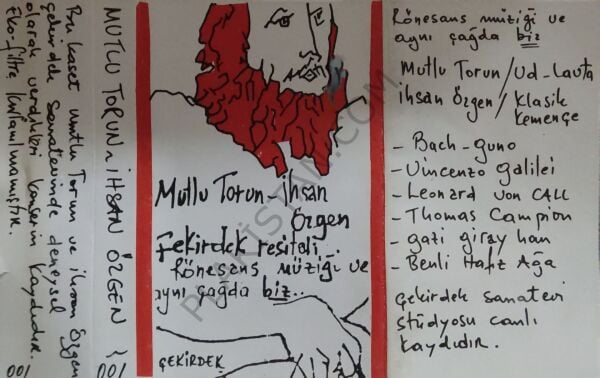 Bu kaset Mutlu Torun ve ihsan Özgen
çekirdek sanatevinde deneysel
olarak verdikleri konserin kaydıdır.
Eko-filtre kullanılmamıştır.
001
MUTLU TORUN ~ İHSAN ÖZGEN
001
Mutlu Torun - ihsan
Özgen
Çekirdek resitali..
Rönesans müziği ve
aynı çağda biz..
ÇEKİRDEK
Rönesans müziği ve
aynı çağda biz
Mutlu Torun / Ud-Lauta
ihsan Özgen / Klasik
kemençe
- Bach-guno
- Vincenzo galilei
- Leonard von CALL
- Thomas Campion
- gazi giray han
- Benli Hafız Ağa
çekirdek sanatevi
stüdyosu canlı
kaydıdır.